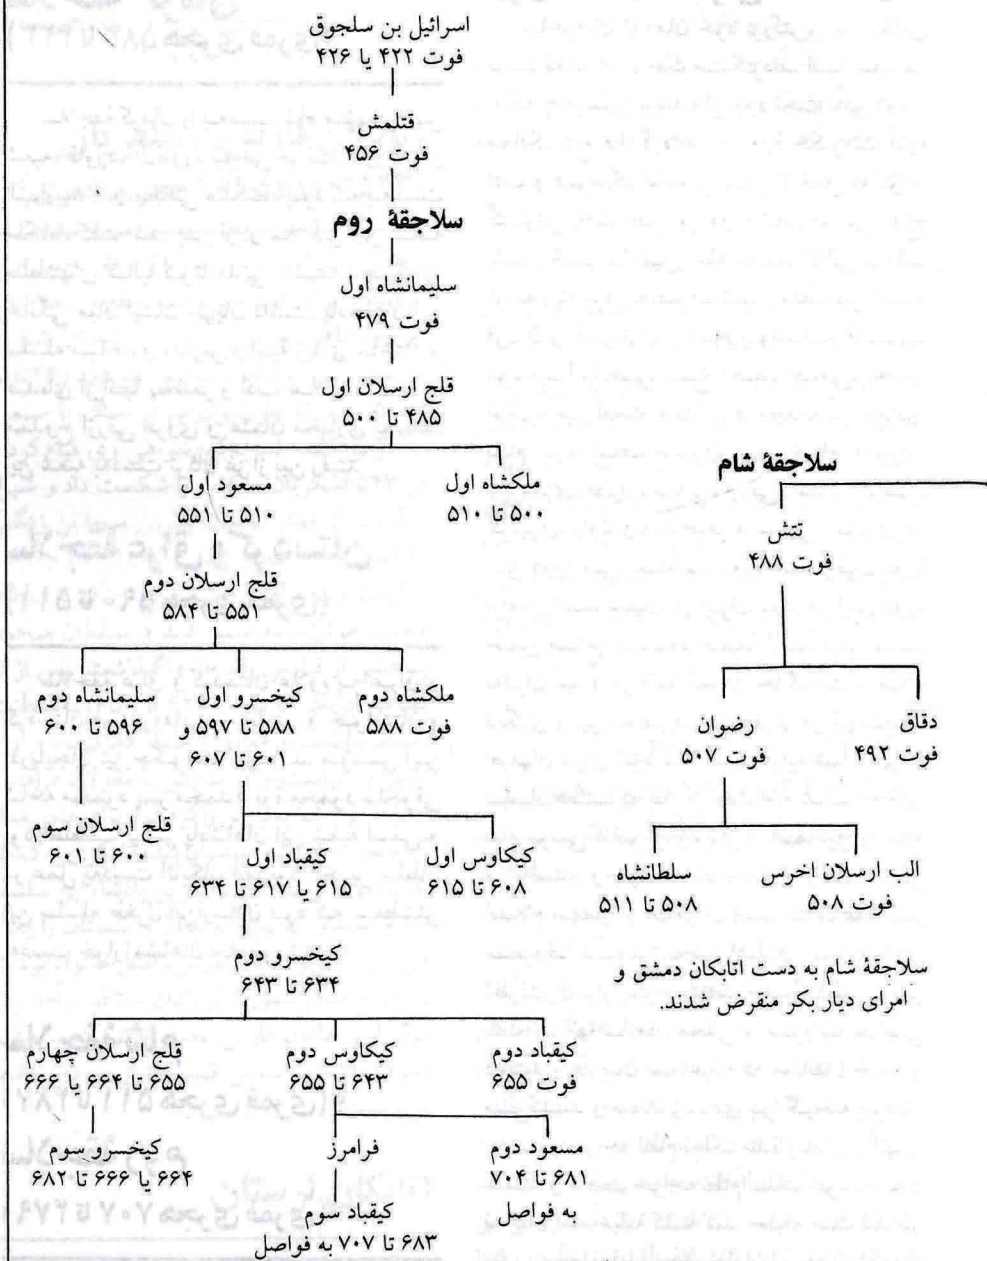 اسرائیل بن سلجوق
فوت ۴۲۲ یا ۴۲۶
قتلمش
فوت ۴۵۶
سلاجقهٔ روم
سلیمانشاه اول
فوت ۴۷۹
قلج ارسلان اول
۴۸۵ تا ۵۰۰
ملکشاه اول
۵۰۰ تا ۵۱۰
مسعود اول
۵۱۰ تا ۵۵۱
قلج ارسلان دوم
۵۵۱ تا ۵۸۴
ملکشاه دوم
فوت ۵۸۸
کیخسرو اول
۵۸۸ تا ۵۹۷ و
۶۰۱ تا ۶۰۷
سلیمانشاه دوم
۵۹۶ تا ۶۰۰
قلج ارسلان سوم
۶۰۰ تا ۶۰۱
کیکاوس اول
۶۰۸ تا ۶۱۵
کیقباد اول
۶۱۵ یا ۶۱۷ تا ۶۳۴
کیخسرو دوم
۶۳۴ تا ۶۴۳
کیقباد دوم
فوت ۶۵۵
کیکاوس دوم
۶۴۳ تا ۶۵۵
قلج ارسلان چهارم
۶۵۵ تا ۶۶۴ یا ۶۶۶
مسعود دوم
۶۸۱ تا ۷۰۴
به فواصل
فرامرز
کیخسرو سوم
۶۶۴ یا ۶۶۶ تا ۶۸۲
کیقباد سوم
۶۸۳ تا ۷۰۷ به فواصل
سلاجقهٔ شام
تتش
فوت ۴۸۸
دقاق
فوت ۴۹۲
رضوان
فوت ۵۰۷
الب ارسلان اخرس
فوت ۵۰۸
سلطانشاه
۵۰۸ تا ۵۱۱
سلاجقهٔ شام به دست اتابکان دمشق و
امرای دیار بکر منقرض شدند.